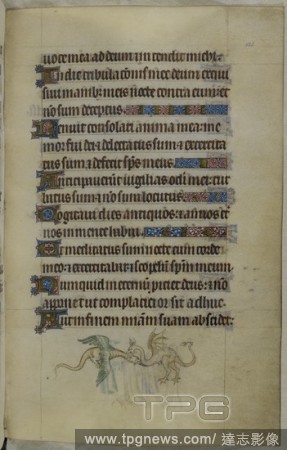 uoce mea ad deum & intendit michi.
In die tribulacionis mee deum exqui
siui manibus meis nocte contra eum: et
non sum deceptus.
Renuit consolari anima mea: me
mor fui dei & delectatus sum & exercita
tus sum & defecit sps meus.
Anticipauerunt uigilias oculi mei: tur
batus sum & non sum locutus.
Cogitaui dies antiquos: & annos et
nos in mente habui.
Et meditatus sum nocte cum corde
meo: & exercitabar & scopebam spm meum.
Nunquid in eternum proiciet deus: & non
apponet ut complacitior sit adhuc.
Aut in finem miam suam abscidet:
TPG
www.tpgnews.com/ 達志影像